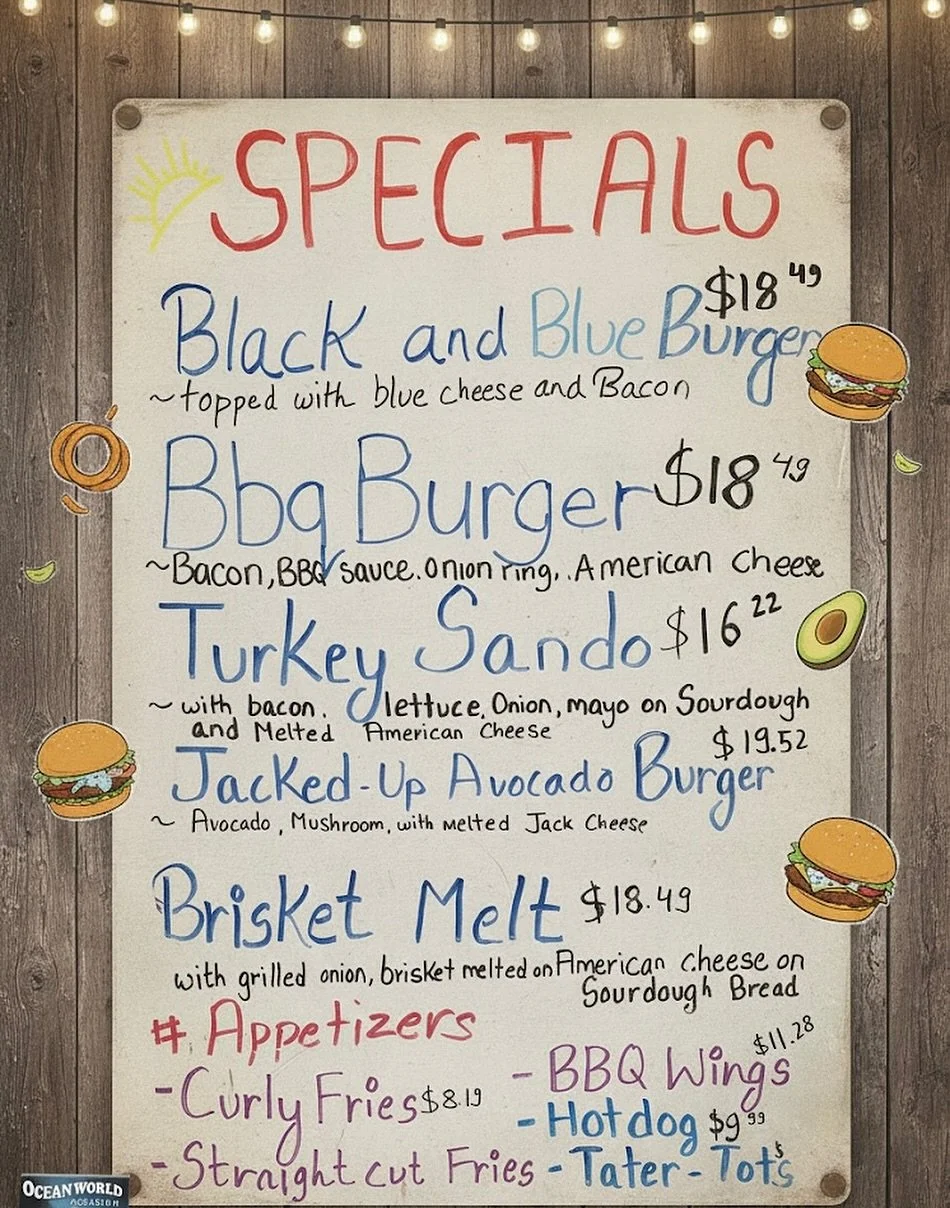 SPECIALS
Black and Blue Burger $18 49
~topped with blue cheese and Bacon
Bbq Burger $18 49
~Bacon, BBQ sauce. onion ring, . American Cheese
Turkey Sando $16 22
~ with bacon. lettuce, Onion, mayo on Sourdough
and Melted American Cheese
Jacked-Up Avocado Burger $19.52
~ Avocado, Mushroom, with Melted Jack Cheese
Brisket Melt $18.49
with grilled onion, brisket melted on American cheese on
Sourdough Bread
# Appetizers
- Curly Fries $8.19
- Straight cut Fries
- BBQ Wings $11.28
- Hotdog $9 99
- Tater-Tots $
OCEAN WORLD